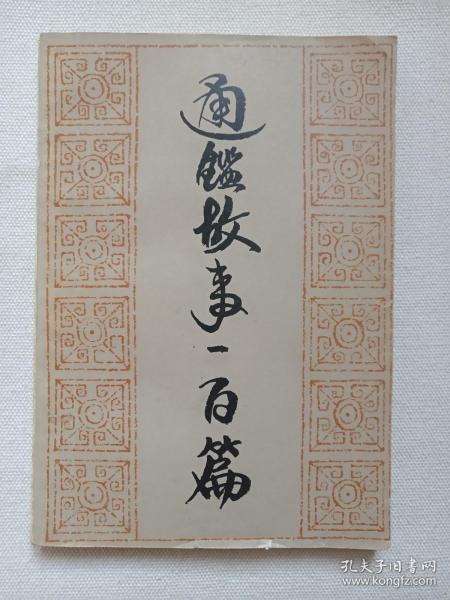 通鑑故事一百篇
孔夫子旧书网
www.kongfz.com